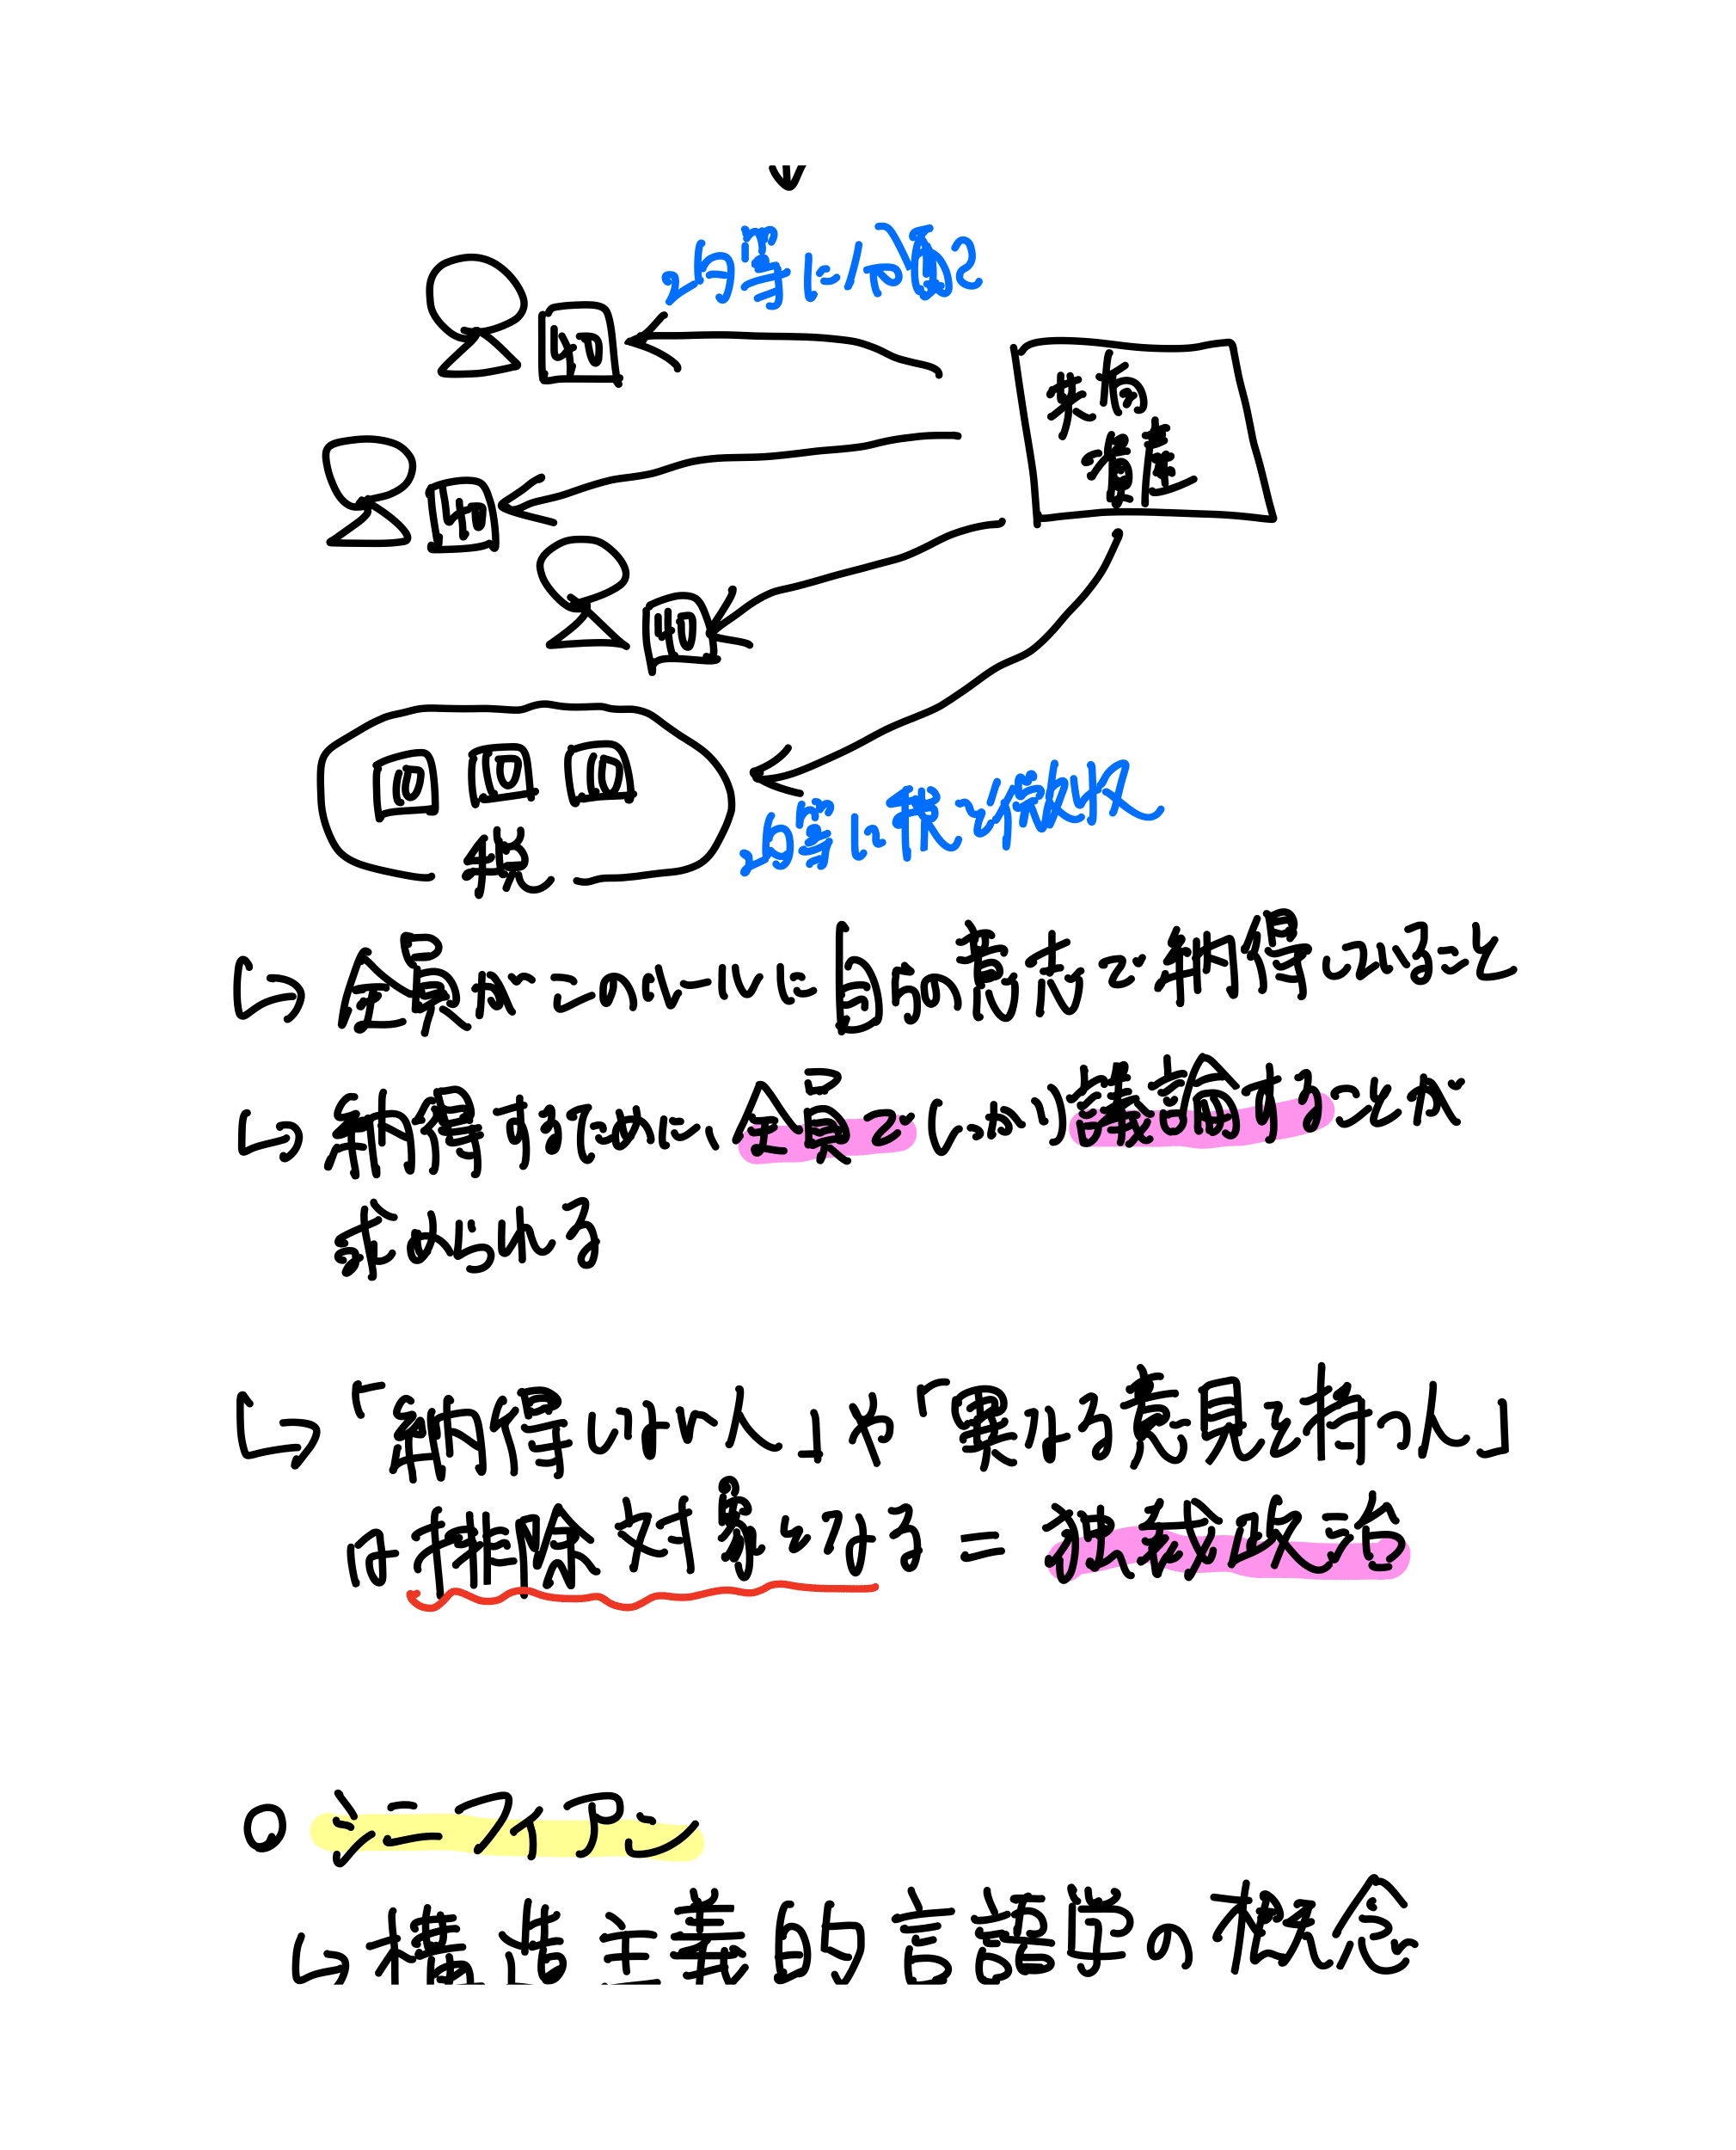 40
40
40
10 10 10
税
↳ 全員がこのルールに自らの意志で納得していること
↳ 納得するためには、全員でしっかり議論することが
求められる
↳ 「納得しない人」や「異なる意見を持つ人」
は排除対象となる = 独裁政治
○ シニフィアン
↳ 構造主義的言語学の概念